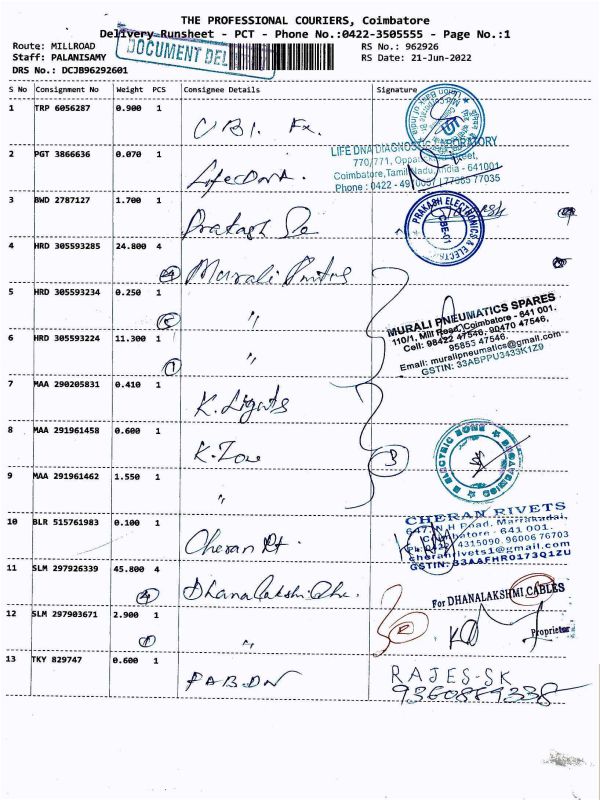 THE PROFESSIONAL COURIERS, Coimbatore
Delivery Runsheet - PCT - Phone No.:0422-3505555 - Page No.:1
Route: MILLROAD
RS No.: 962926
DOCUMENT DEL
Staff: PALANISAMY
RS Date: 21-Jun-2022
DRS No.: DCJB96292601
S No Consignment No Weight PCS Consignee Details Signature
1 TRP 6056287 0.900 1 UBI. Fx.
2 PGT 3866636 0.070 1
LIFE DNA DIAGNOSTIC LABORATORY
770/771, Street,
Coimbatore, Tamil Nadu, India - 641001
Phone : 0422 - 77035
3 BWD 2787127 1.700 1
PRAKASH ELECTRONICS & ELECTRI
CBE-01
4 HRD 305593285 24.800 4 Murali
4
5 HRD 305593234 0.250 1 "
MURALI PNEUMATICS SPARES
110/1, Mill Road, Coimbatore - 641 001.
Cell: 98422 47546, 90470 47546,
95853 47546,
Email: muralipneumatics@gmail.com
GSTIN: 33ABPPU3433K1Z9
6 HRD 305593224 11.300 1 "
1
7 MAA 290205831 0.410 1 K. Lights
8 MAA 291961458 0.600 1 K. Zone
3
ELECTRIC ZONE
9 MAA 291961462 1.550 1 "
10 BLR 515761983 0.100 1 Cheran Rt.
CHERAN RIVETS
647, N H Road, Marrakadai,
Coimbatore - 641 001.
Ph: 0422 4315090, 96006 76703
cheranrivets1@gmail.com
GSTIN: 33AAFHR0173Q1ZU
11 SLM 297926339 45.800 4
4
For DHANALAKSHMI CABLES
12 SLM 297903671 2.900 1 "
1
2
Proprietor
13 TKY 829747 0.600 1
RAJES-SK